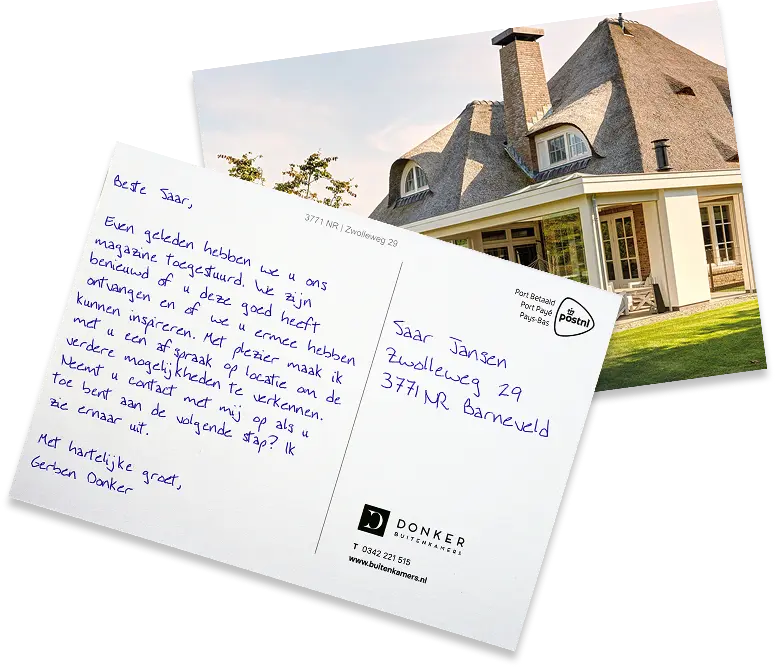 Beste Saar,
Even geleden hebben we u ons
magazine toegestuurd. We zijn
benieuwd of u deze goed heeft
ontvangen en of we u ermee hebben
kunnen inspireren. Met plezier maak ik
met u een afspraak op locatie om de
verdere mogelijkheden te verkennen.
Neemt u contact met mij op als u
toe bent aan de volgende stap? Ik
zie ernaar uit.
Met hartelijke groet,
Gerben Donker
3771 NR | Zwolleweg 29
Port Betaald
Port Payé
Pays-Bas
postnl
Saar Jansen
Zwolleweg 29
3771 NR Barneveld
DONKER
BUITENKAMERS
T 0342 221 515
www.buitenkamers.nl